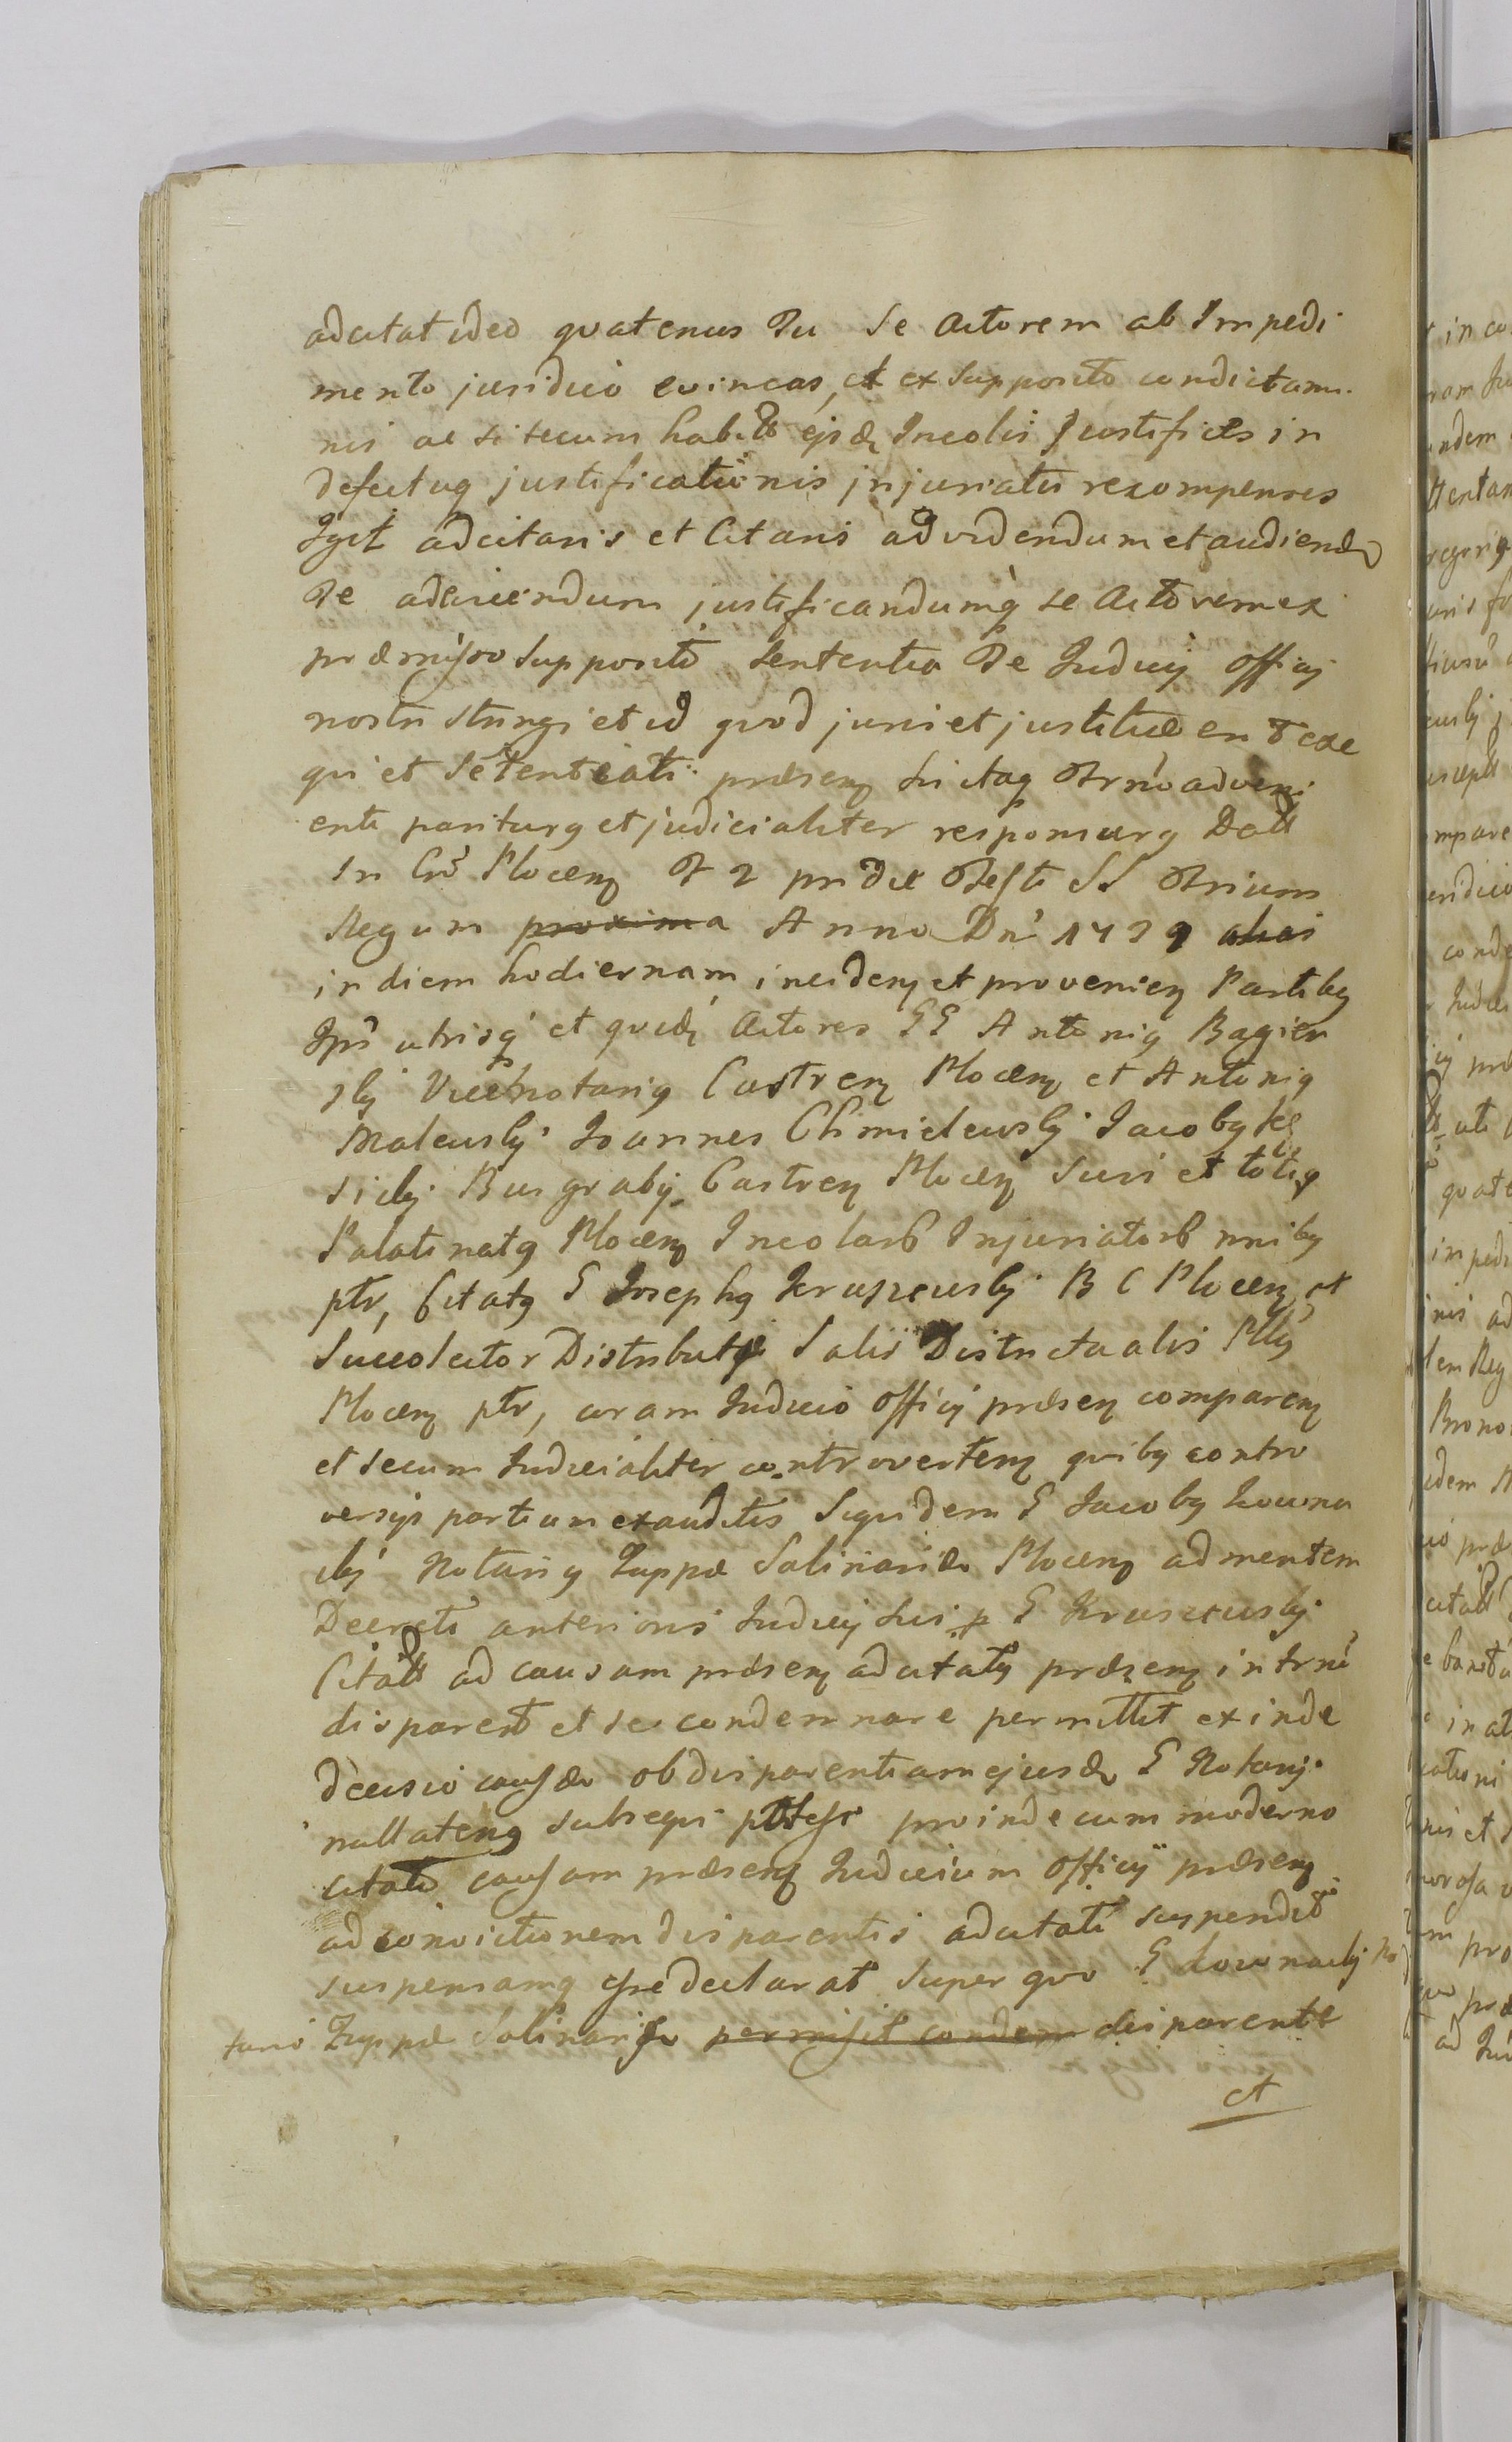 adcitat ideo quatenus Tu Se Actorem ab Impedi
mento juridico evincas, et ex Supposito condictami
nis ac si tecum habit ejsd Incolis Justifices in
defectuq justificationis injuriatis recompenses
Igit adcitaris et Citaris ad videndum et audiend
Te adjiciendum justificandumq se Actorem ex
præmisso Supposito Sententia Te Judicij Officij
nostri stringi et id quod juris et justitiæ erit exe
qui et Sententiati præsen Lictaq Trno adveni
enti pariturq et judicialiter responsurq Datt
In Cro Plocen F 2 pridie Festi SS Trium
Regum proxima Anno Dni 1789 alias
in diem hodiernam inciden et provenien Partibq
Ips utrisq et quid Actores GG Antoniq Bagien
skj Vicenotariq Castren Plocen et Antoniq
Maleuskj Joannes Chmieleuskj Jacobq Kę
sickj Burgrabij Castren Plocen Sui et totiq
Palatinatq Plocen Incolar Injuriator nnibq
ptr, Citatq G Josephq Kruszeuskj B C Plocen et
Succolector Distributæ Salis Districtualis Pllis
Plocen ptr, coram Judicio Officij præsen comparen
et secum Judicialiter controverten quibq contro
versijs partium exauditis Siquidem G Jacobq Lowna
ckj Notariq Zuppæ Salinariæ Plocen ad mentem
Decreti anterioris Judicij Sui p G Kruszeuskj
Citatt ad causam præsen adcitatq præsen in trno
disparet et se condemnare permittit exinde
decisio causæ ob disparentiam ejusd G Notarij
nullatenq subseqi potest proinde cum moderno
citato causam præsen Judicium Officij præsen
ad convictionem disparentis adcitati suspendit
suspensamq esse declarat Super quo G Lownackj No
tario Zuppæ Salinariæ permisit condem disparente
et